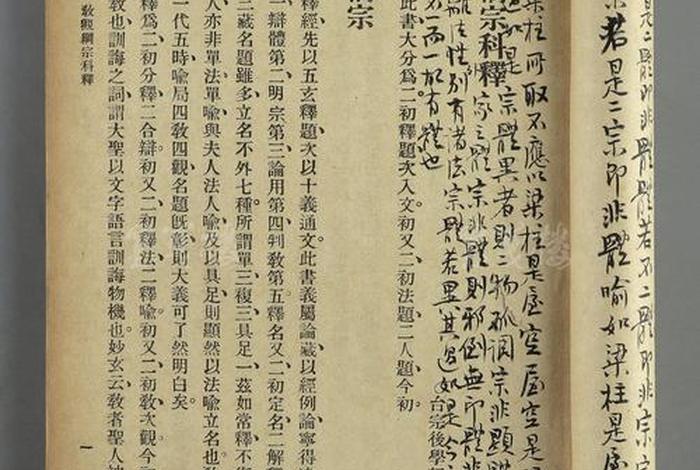 二體即非體體若不二體即非宗宗
若是二宗即非體喻如梁柱是屋
梁柱所取不應以梁柱是屋空屋空是
是宗體異者則二物孤調宗非顯體
家之體宗非體則邪倒無印體非
法性別有者法宗體若異其過如是今
不一而一故有體也
宗科釋
台宗後學
此書大分為二初釋題次入文初又二初法題二人題今初
宗
釋經先以五玄釋題次以十義通文此書義屬論藏以經例論寧得
一辯體第二明宗第三論用第四判教第五釋名又二初定名二解釋
三藏名題雖多立名不外七種所謂單三複三具足一茲如常釋不
人亦非單法單喻與夫人法人喻及以具足則顯然以法喻立名也
一代五時喻局四教四觀名題既彰則大義可了然明白矣
釋為二初分釋二合辯初又二初釋法二釋喻初又二初教次觀今初
教也訓誨之詞謂大聖以文字語言訓誨物機也妙玄云教者聖人
教觀綱宗科釋
一